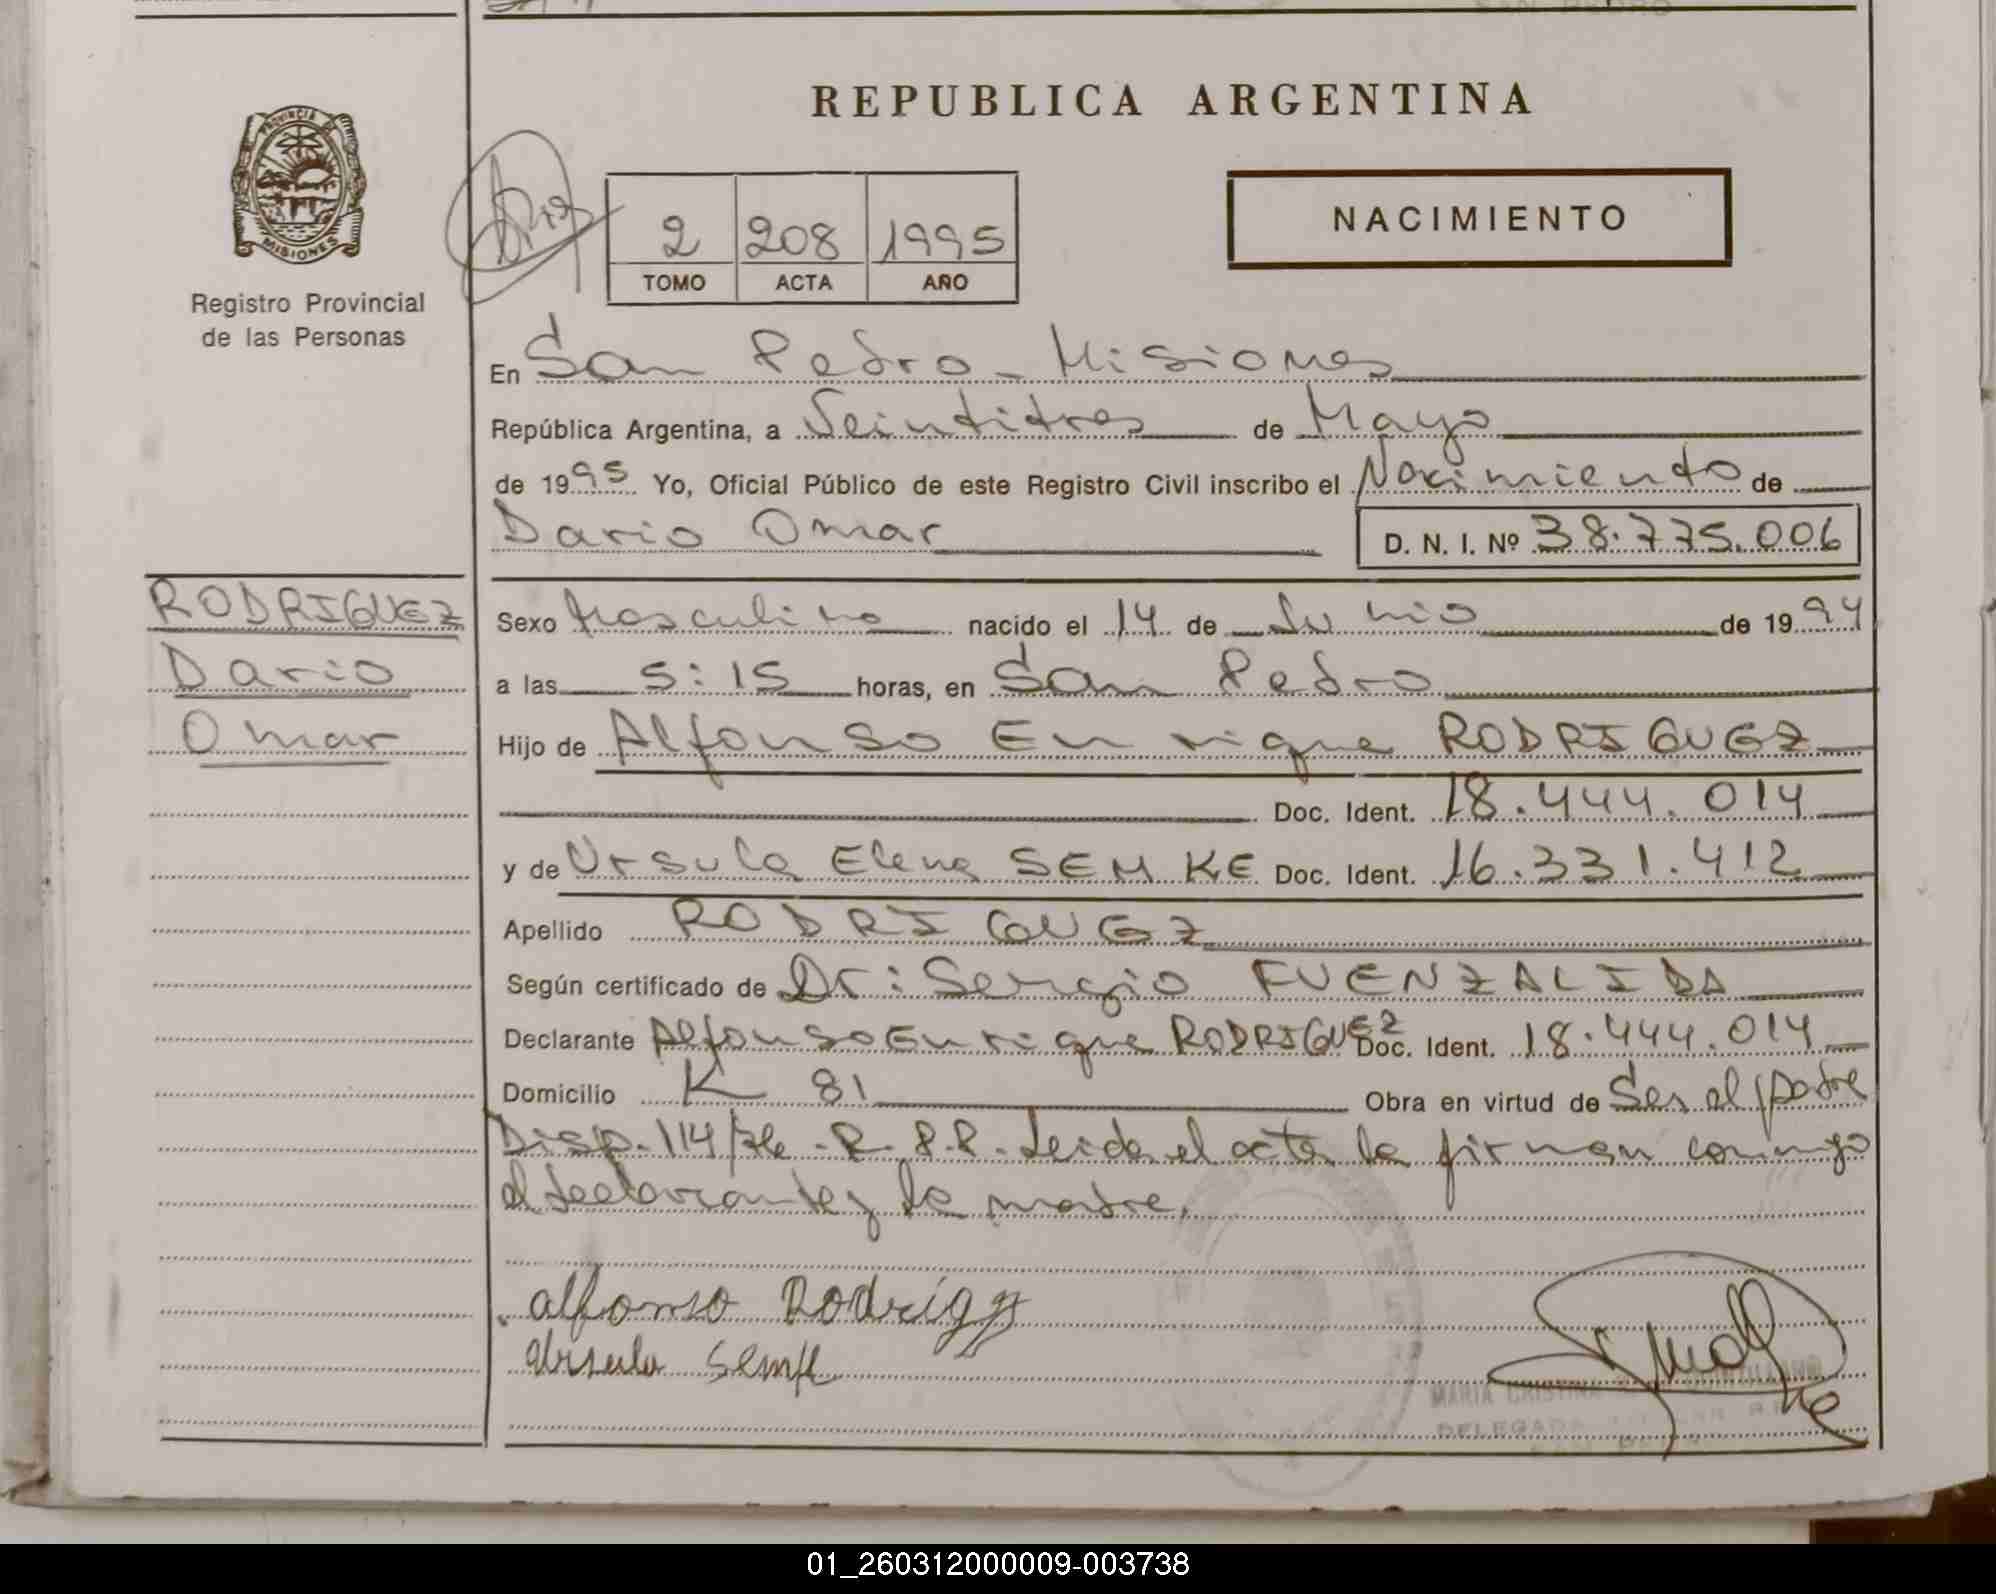 REPUBLICA ARGENTINA
PROVINCIA DE
MISIONES
Registro Provincial
de las Personas
2 208 1995
TOMO ACTA AÑO
NACIMIENTO
En San Pedro - Misiones
República Argentina, a Veintitres de Mayo
de 1995 Yo, Oficial Público de este Registro Civil inscribo el Nacimiento de
Dario Omar D. N. I. Nº 38.775.006
RODRIGUEZ
Dario
Omar
Sexo Masculino nacido el 14 de Junio de 1994
a las 5:15 horas, en San Pedro
Hijo de Alfonso Enrique RODRIGUEZ
Doc. Ident. 18.444.014
y de Ursula Elena SEMKE Doc. Ident. 16.331.412
Apellido RODRIGUEZ
Según certificado de Dr: Sergio FUENZALIDA
Declarante Alfonso Enrique RODRIGUEZ Doc. Ident. 18.444.014
Domicilio K 81 Obra en virtud de Ser el padre
Disp. 114/76 - R. P. P. Leida el acta la firman conmigo
el declarante y la madre.
alfonso Rodrigz
Ursula Semk
MARIA CRISTINA
DELEGADA
01_260312000009-003738